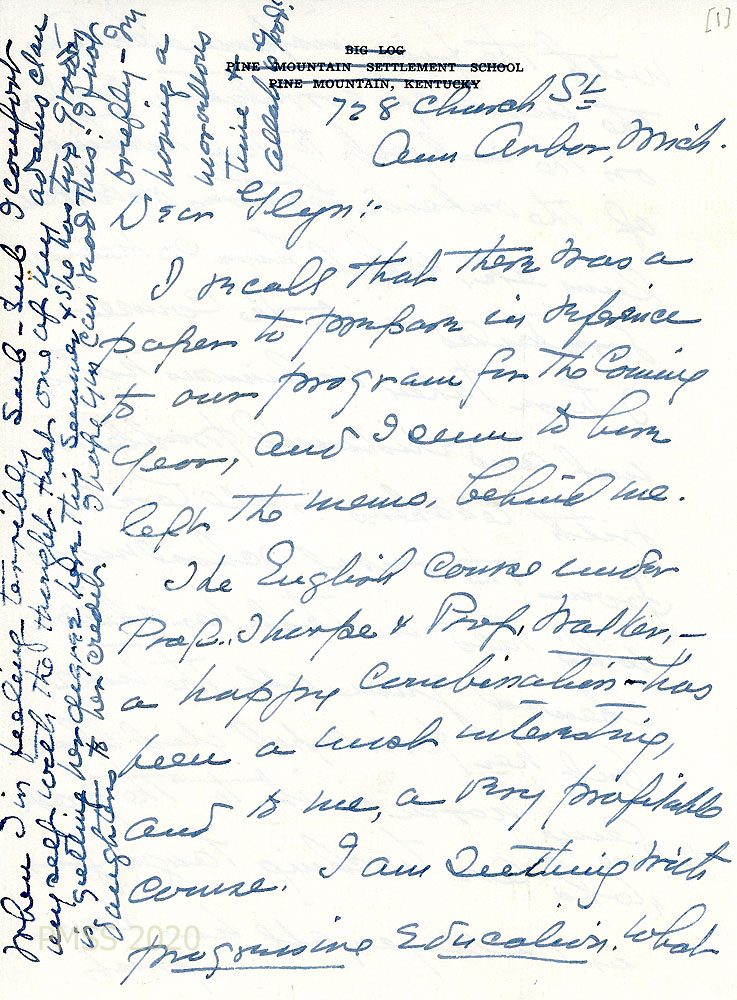 [1]
BIG LOG
PINE MOUNTAIN SETTLEMENT SCHOOL
PINE MOUNTAIN, KENTUCKY
728 Church St
Ann Arbor, Mich.
Dear Glyn:-
I recall that there was a
paper to prepare in reference
to our program for the coming
year, and I seem to have
left the memo. behind me.
The English course under
Prof. Thorpe & Prof. Walker, -
a happy combination - has
been a most interesting,
and to me, a very profitable
course. I am seething with
progressive education. What
When I'm feeling terribly sub-sub I comfort
myself with the thought that one of my adams clan
is getting her degree here this summer & she has two grand
daughters to her credit. I hope you can read this. If not
briefly - I'm
having a
marvellous
time &
all is good!
PMSS 2020